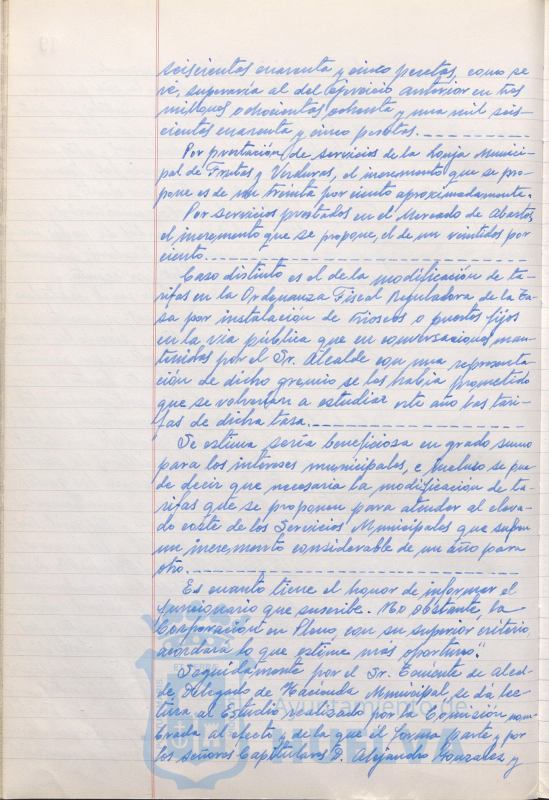 seiscientos cuarenta y cinco pesetas, como se
vé, superaría al del Ejercicio anterior en tres
millones ochocientas ochenta y una mil seis-
cientas cuarenta y cinco pesetas.
Por prestación de servicios de la Lonja Munici-
pal de Frutas y Verduras, el incremento que se pro-
pone es de un treinta por ciento aproximadamente.
Por servicios prestados en el Mercado de Abastos,
el incremento que se propone, el de un veintidos por
ciento.
Caso distinto es el de la modificación de ta-
rifas en la Ordenanza Fiscal Reguladora de la Ta-
sa por instalación de Kioscos o puestos fijos
en la via pública que en conversaciones man-
tenidas por el Sr. Alcalde con una representa-
ción de dicho gremio se les había prometido
que se volverían a estudiar este año las tari-
fas de dicha tasa.
Se estima sería beneficiosa en grado sumo
para los intereses municipales, e incluso se pue-
de decir que necesaria la modificación de ta-
rifas que se proponen para atender al eleva-
do coste de los Servicios Municipales que sufren
un incremento considerable de un año para
otro.
Es cuanto tiene el honor de informar el
funcionario que suscribe. No obstante, la
Corporación en Pleno, con su superior criterio,
acordará lo que estime mas oportuno."
Seguidamente por el Sr. Teniente de Alcal-
de, Delegado de Hacienda Municipal, se da lec-
tura al Estudio realizado por la Comisión nom-
brada al efecto y de la que él forma parte y por
los señores Capitulares D. Alejandro Gonzalez y
Ayuntamiento de
HUELVA